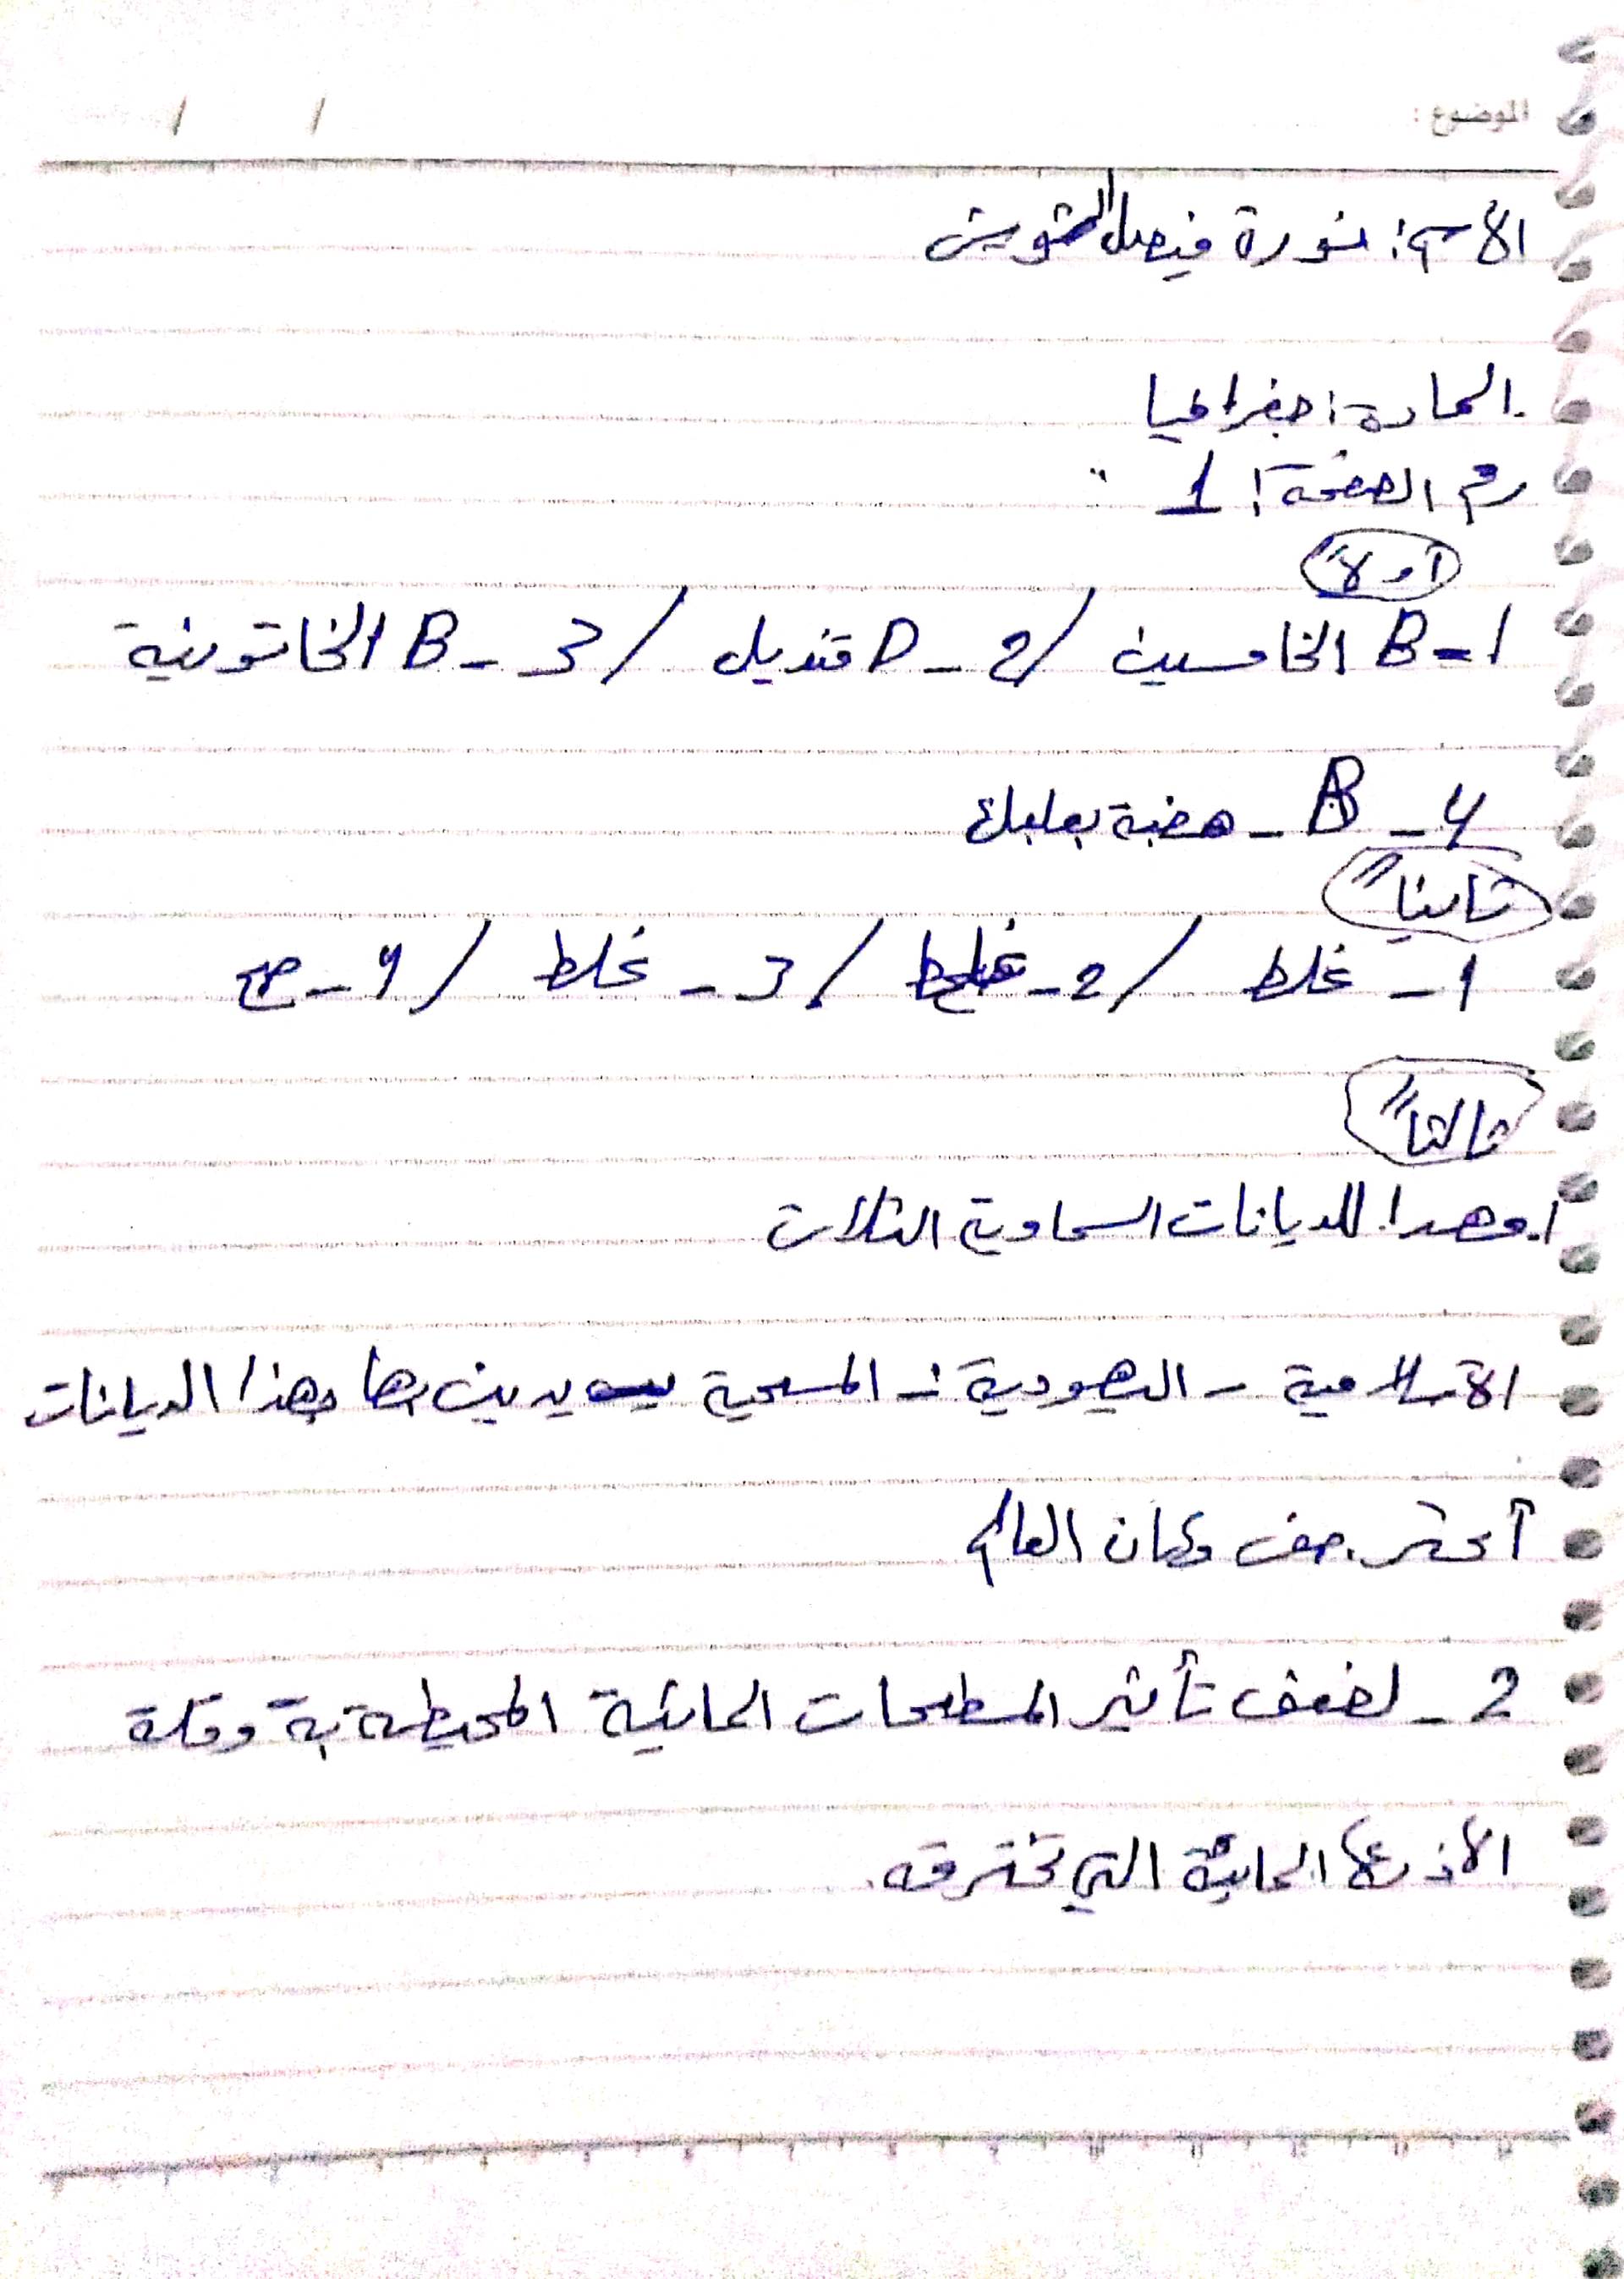 الموضوع :
/ /
الأسم: نورة فيصل
المادة: جغرافيا
رقم الصفحة: 1
أولاً
1-B الخامسين / 2-D قنديل / 3-B الخاتونية
4-B-هضبة بعلبك
ثانياً
1- غلط / 2- / 3- غلط / 4- صح
ثالثاً
1. مهدا للديانات السماوية الثلاث
الاسلامية - اليهودية - المسحية يدين بها بهذا الديانات
أكثر من نصف سكان العالم
2- لضعف تأثير المسطحات المائية المحيطة به وقلة
الأذرع المائية التي تخترقه.